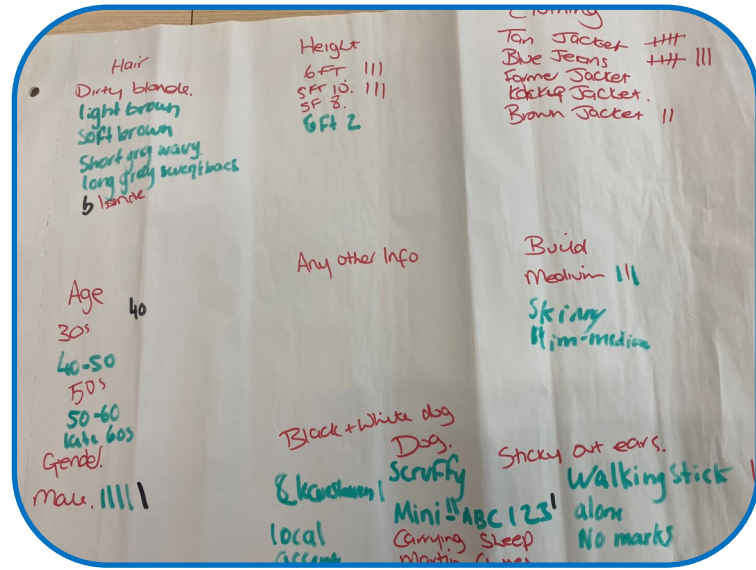 Hair
Dirty blonde.
light brown
Soft brown
Short grey wavy
long grey swept back
blonde
Height
6FT |||
5FT 10. |||
5F 8.
6Ft 2
Clothing
Tan Jacket ||||
Blue Jeans |||| |||
Farmer Jacket
Jacket.
Brown Jacket ||
Any other Info
Build
Medium |||
Skinny
slim-medium
Age
40
30s
40-50
50s
50-60
late 60s
Gender.
Male. |||| |
Black + White dog
Dog.
Scruffy
Mini !! ABC 123
Carrying Sleep
Martin
local
accent
Sticky out ears.
Walking Stick
alone
No marks